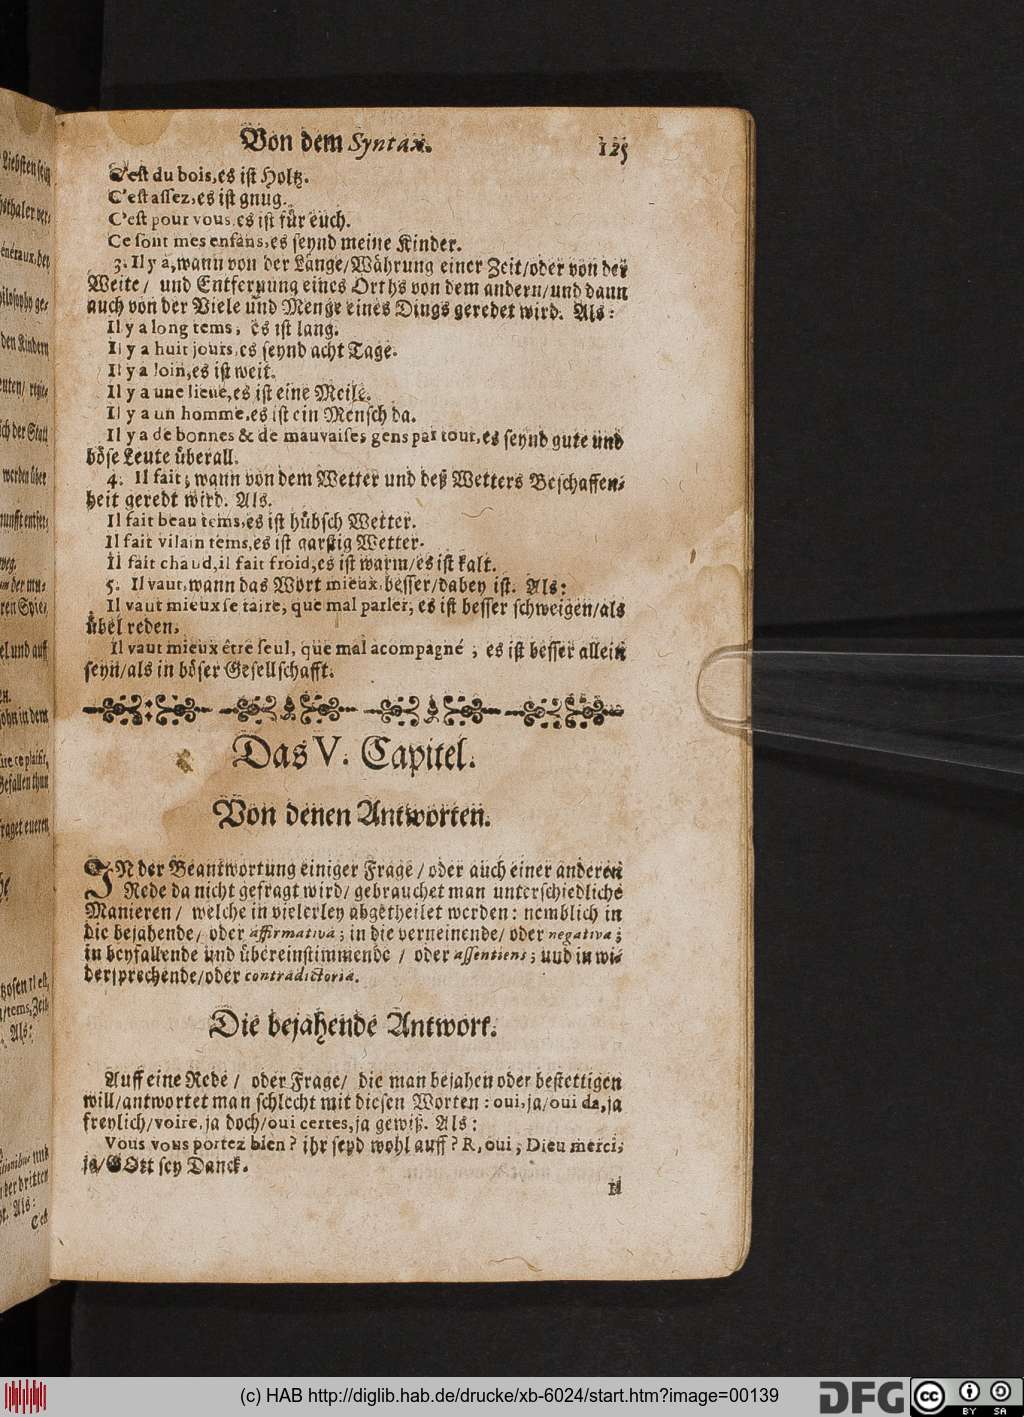 Von dem Syntax. 125
C'est du bois, es ist Holtz.
C'est assez, es ist gnug.
C'est pour vous, es ist für euch.
Ce sont mes enfans, es seynd meine Kinder.
3. Il y a, wann von der Länge/Währung einer Zeit/oder von der
Weite/ und Entfernung eines Orths von dem andern/und dann
auch von der Viele und Menge eines Dings geredet wird. Als:
Il y a long tems, es ist lang.
Il y a huit jours, es seynd acht Tage.
Il y a loin, es ist weit.
Il y a une lieue, es ist eine Meile.
Il y a un homme, es ist ein Mensch da.
Il y a de bonnes & de mauvaises gens par tout, es seynd gute und
böse Leute überall.
4. Il fait, wann von dem Wetter und deß Wetters Beschaffen-
heit geredt wird. Als.
Il fait beau tems, es ist hübsch Wetter.
Il fait vilain tems, es ist garstig Wetter.
Il fait chaud, il fait froid, es ist warm/es ist kalt.
5. Il vaut, wann das Wort mieux, besser/dabey ist. Als:
Il vaut mieux se taire, que mal parler, es ist besser schweigen/als
übel reden.
Il vaut mieux être seul, que mal acompagné, es ist besser allein
seyn/als in böser Gesellschafft.
Das V. Capitel.
Von denen Antworten.
IN der Beantwortung einiger Frage/oder auch einer anderen
Rede da nicht gefragt wird/ gebrauchet man unterschiedliche
Manieren/ welche in vielerley abgetheilet werden: nemblich in
die bejahende/ oder affirmativa; in die verneinende/ oder negativa;
in beyfallende und übereinstimmende / oder assentiens; und in wi-
dersprechende/oder contradictoria.
Die bejahende Antwort.
Auff eine Rede / oder Frage/ die man bejahen oder bestettigen
will/antwortet man schlecht mit diesen Worten: oui, ja/oui da, ja
freylich/voire, ja doch/oui certes, ja gewiß. Als:
Vous vous portez bien? ihr seyd wohl auff? R. oui, Dieu merci,
ja/GOtt sey Danck.
(c) HAB http://diglib.hab.de/drucke/xb-6024/start.htm?image=00139
DFG
cc
BY SA